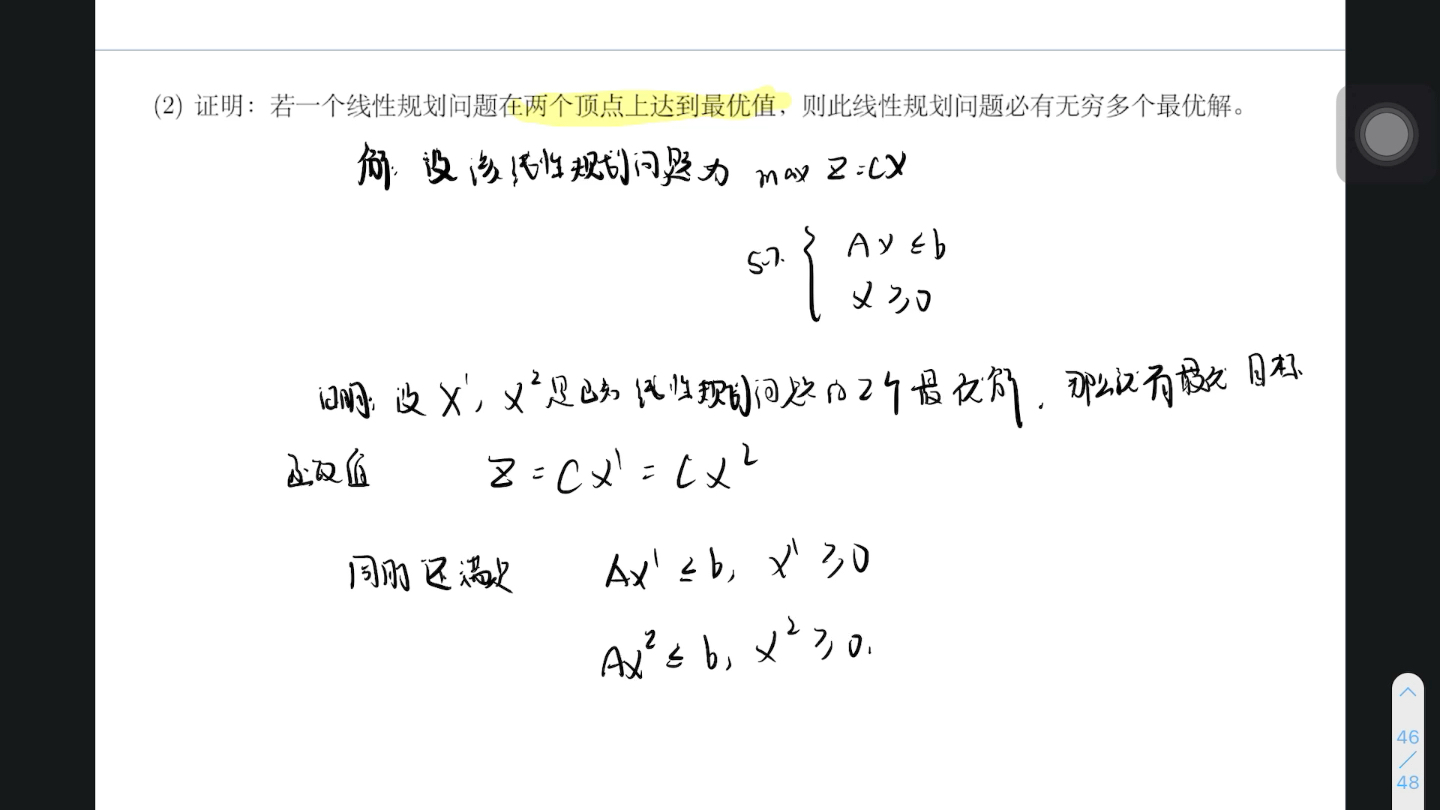 (2) 证明：若一个线性规划问题在两个顶点上达到最优值，则此线性规划问题必有无穷多个最优解。
解: 设该线性规划问题为 max Z=CX
s.t. { AX ≤ b
X ≥ 0
证明: 设 X¹, X² 是已知线性规划问题的2个最优解, 那么就有最优目标
函数值 Z = CX¹ = CX²
同时还满足 AX¹ ≤ b, X¹ ≥ 0
AX² ≤ b, X² ≥ 0.
46
/
48